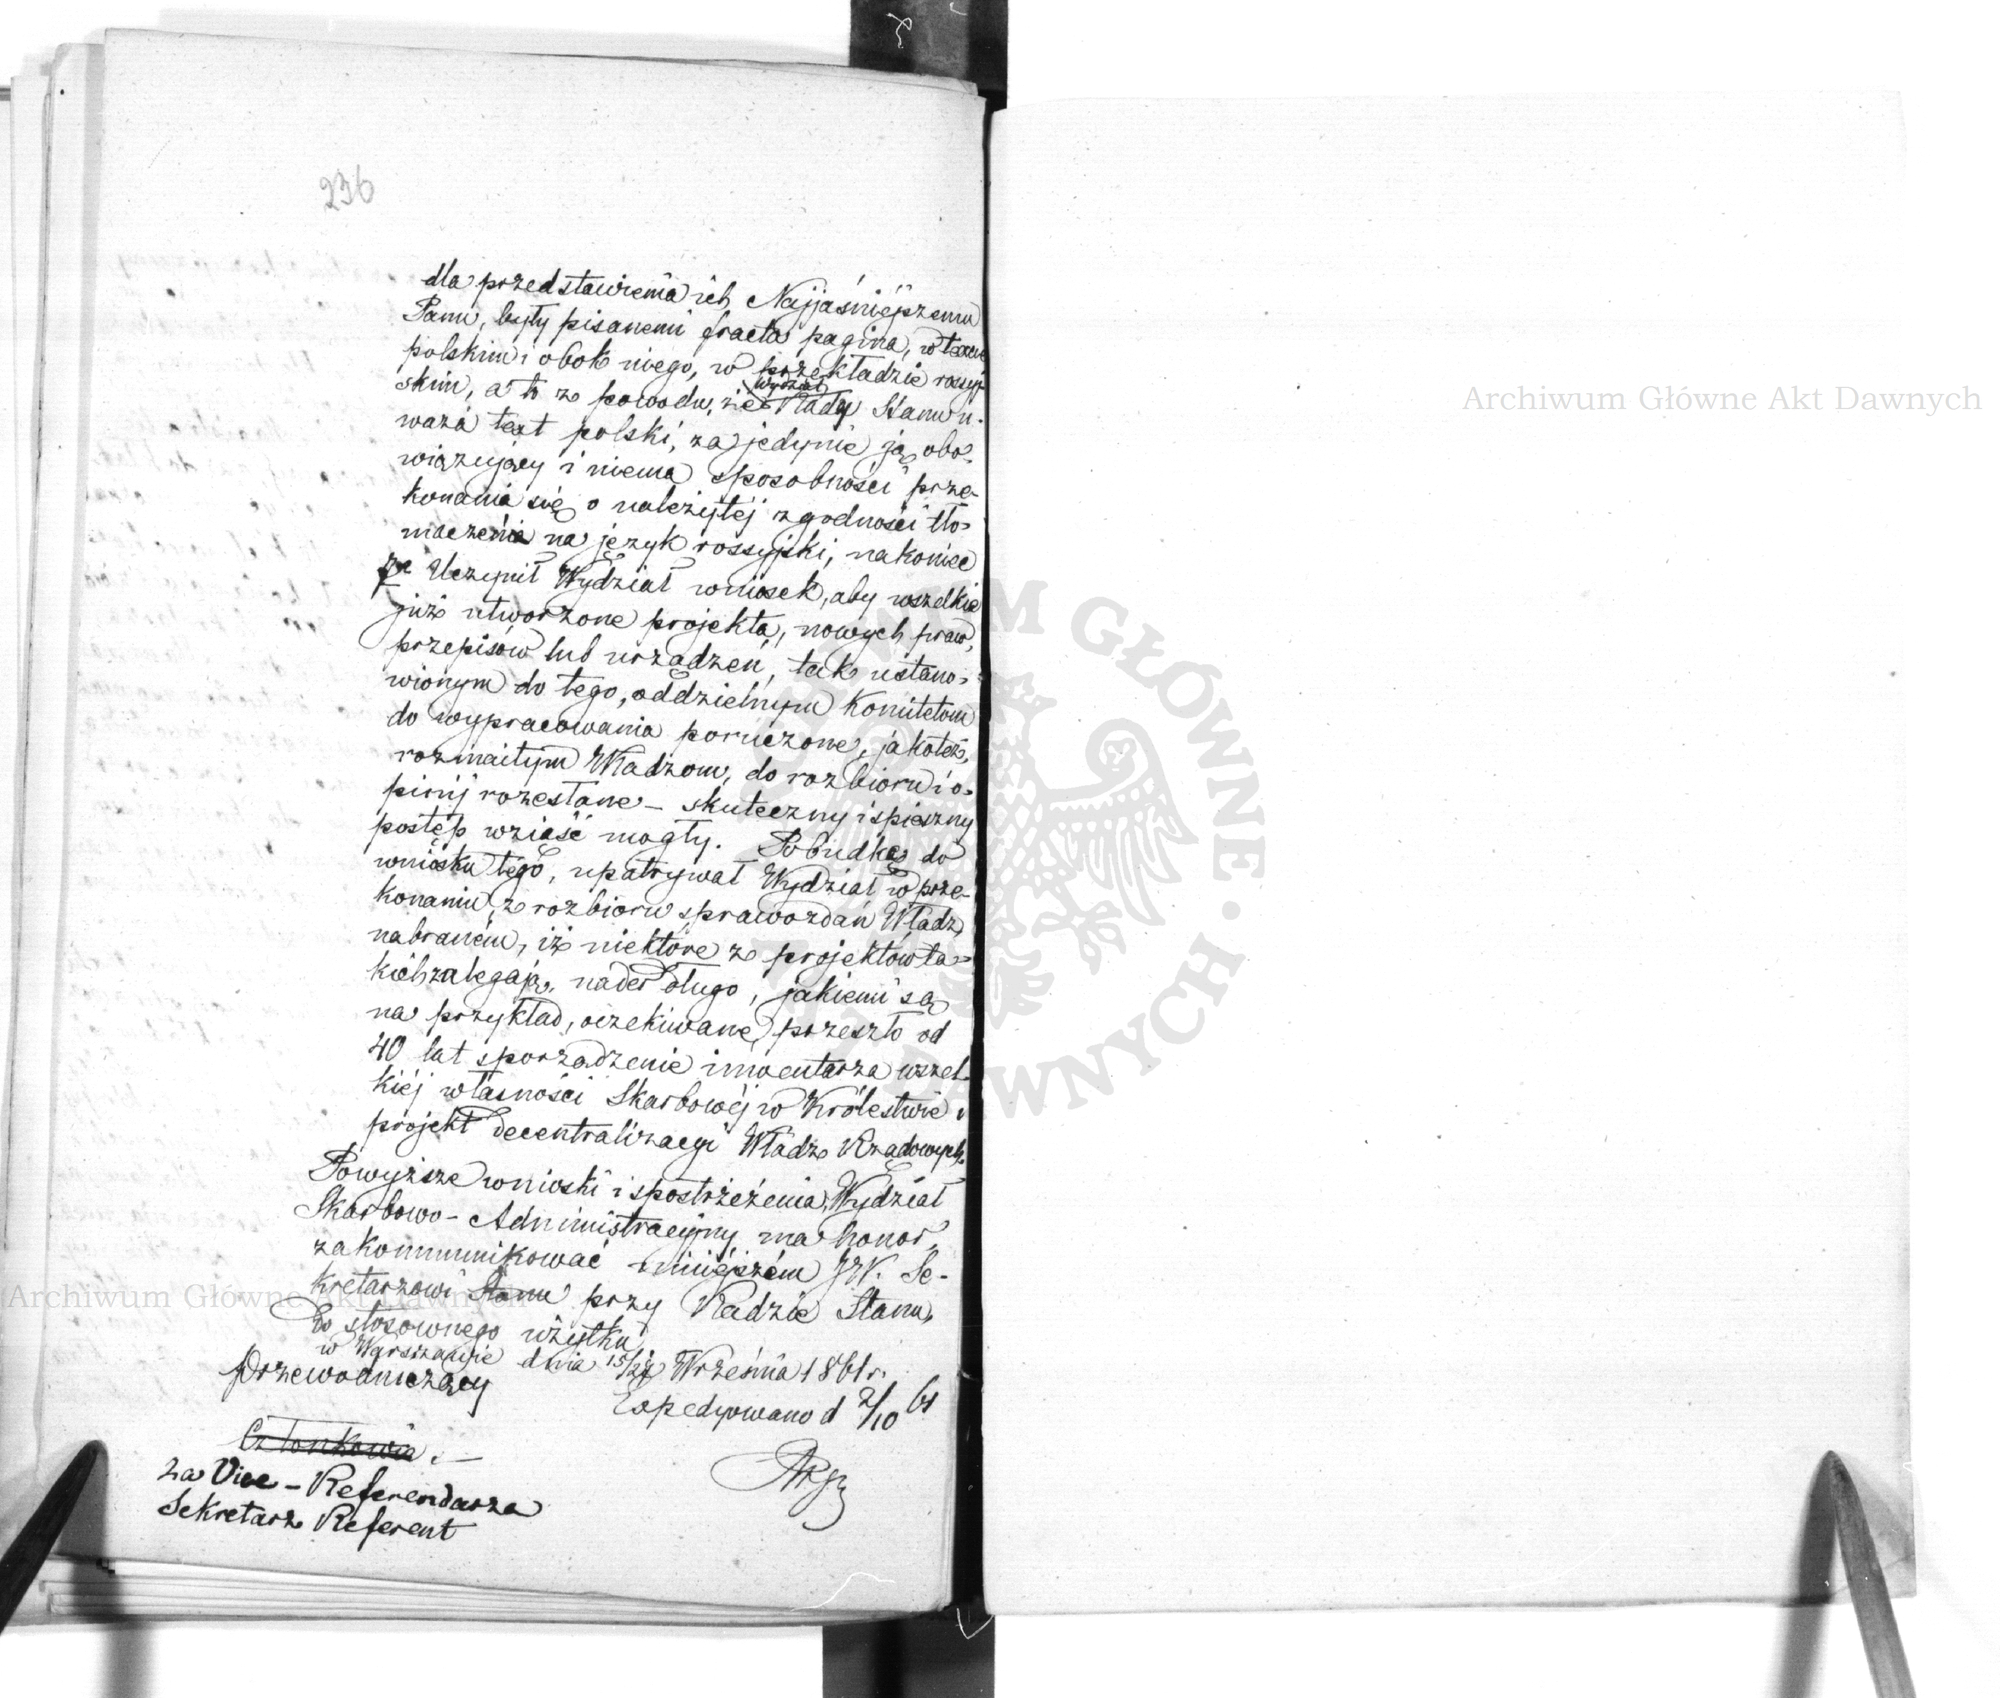 236
dla przedstawienia ich Najjaśniejszemu
Panu, były pisanemi fracta pagina, w texcie
polskim i obok niego, w przekładzie rossyj-
skim, a to z powodu, że Wydział Rady Stanu u-
waża text polski, za jedynie ją obo-
wiązujący i niema sposobności prze-
konania się o należytéj zgodności tło-
maczenia na język rossyjski, nakoniec
Uczynił Wydział wniosek, aby wszelkie
już utworzone projekta, nowych praw,
przepisów lub urządzeń, tak ustano-
wionym do tego, oddzielnym Komitetom
do wypracowania poruczone, jakoteż,
rozmaitym Władzom, do rozbioru i o-
pinij rozesłane – skuteczny i spieszny
postęp wziąść mogły. Pobudkę do
wniosku tego, upatrywał Wydział w prze-
konaniu, z rozbioru sprawozdań Władz,
nabraném, iż niektóre z projektów ta-
kich zalegają, nader długo, jakiemi są
na przykład, oczekiwane przeszło od
40 lat sporządzenie inwentarza wszel-
kiéj własności Skarbowéj w Królestwie i
projekt decentralizacyi Władz Rządowych.
Powyższe wnioski i spostrzeżenia, Wydział
Skarbowo-Administracyjny ma honor,
zakommunikować niniejszém JW. Se-
kretarzowi Stanu przy Radzie Stanu,
do stosownego użytku
w Warszawie dnia 15/27 Września 1861 r.
Przewodniczący
Expedyowano d 2/10 61
Członkowie. –
za Vice-Referendarza
Sekretarz Referent
Archiwum Główne Akt Dawnych
Archiwum Główne Akt Dawnych
ARCHIWUM GŁÓWNE AKT DAWNYCH